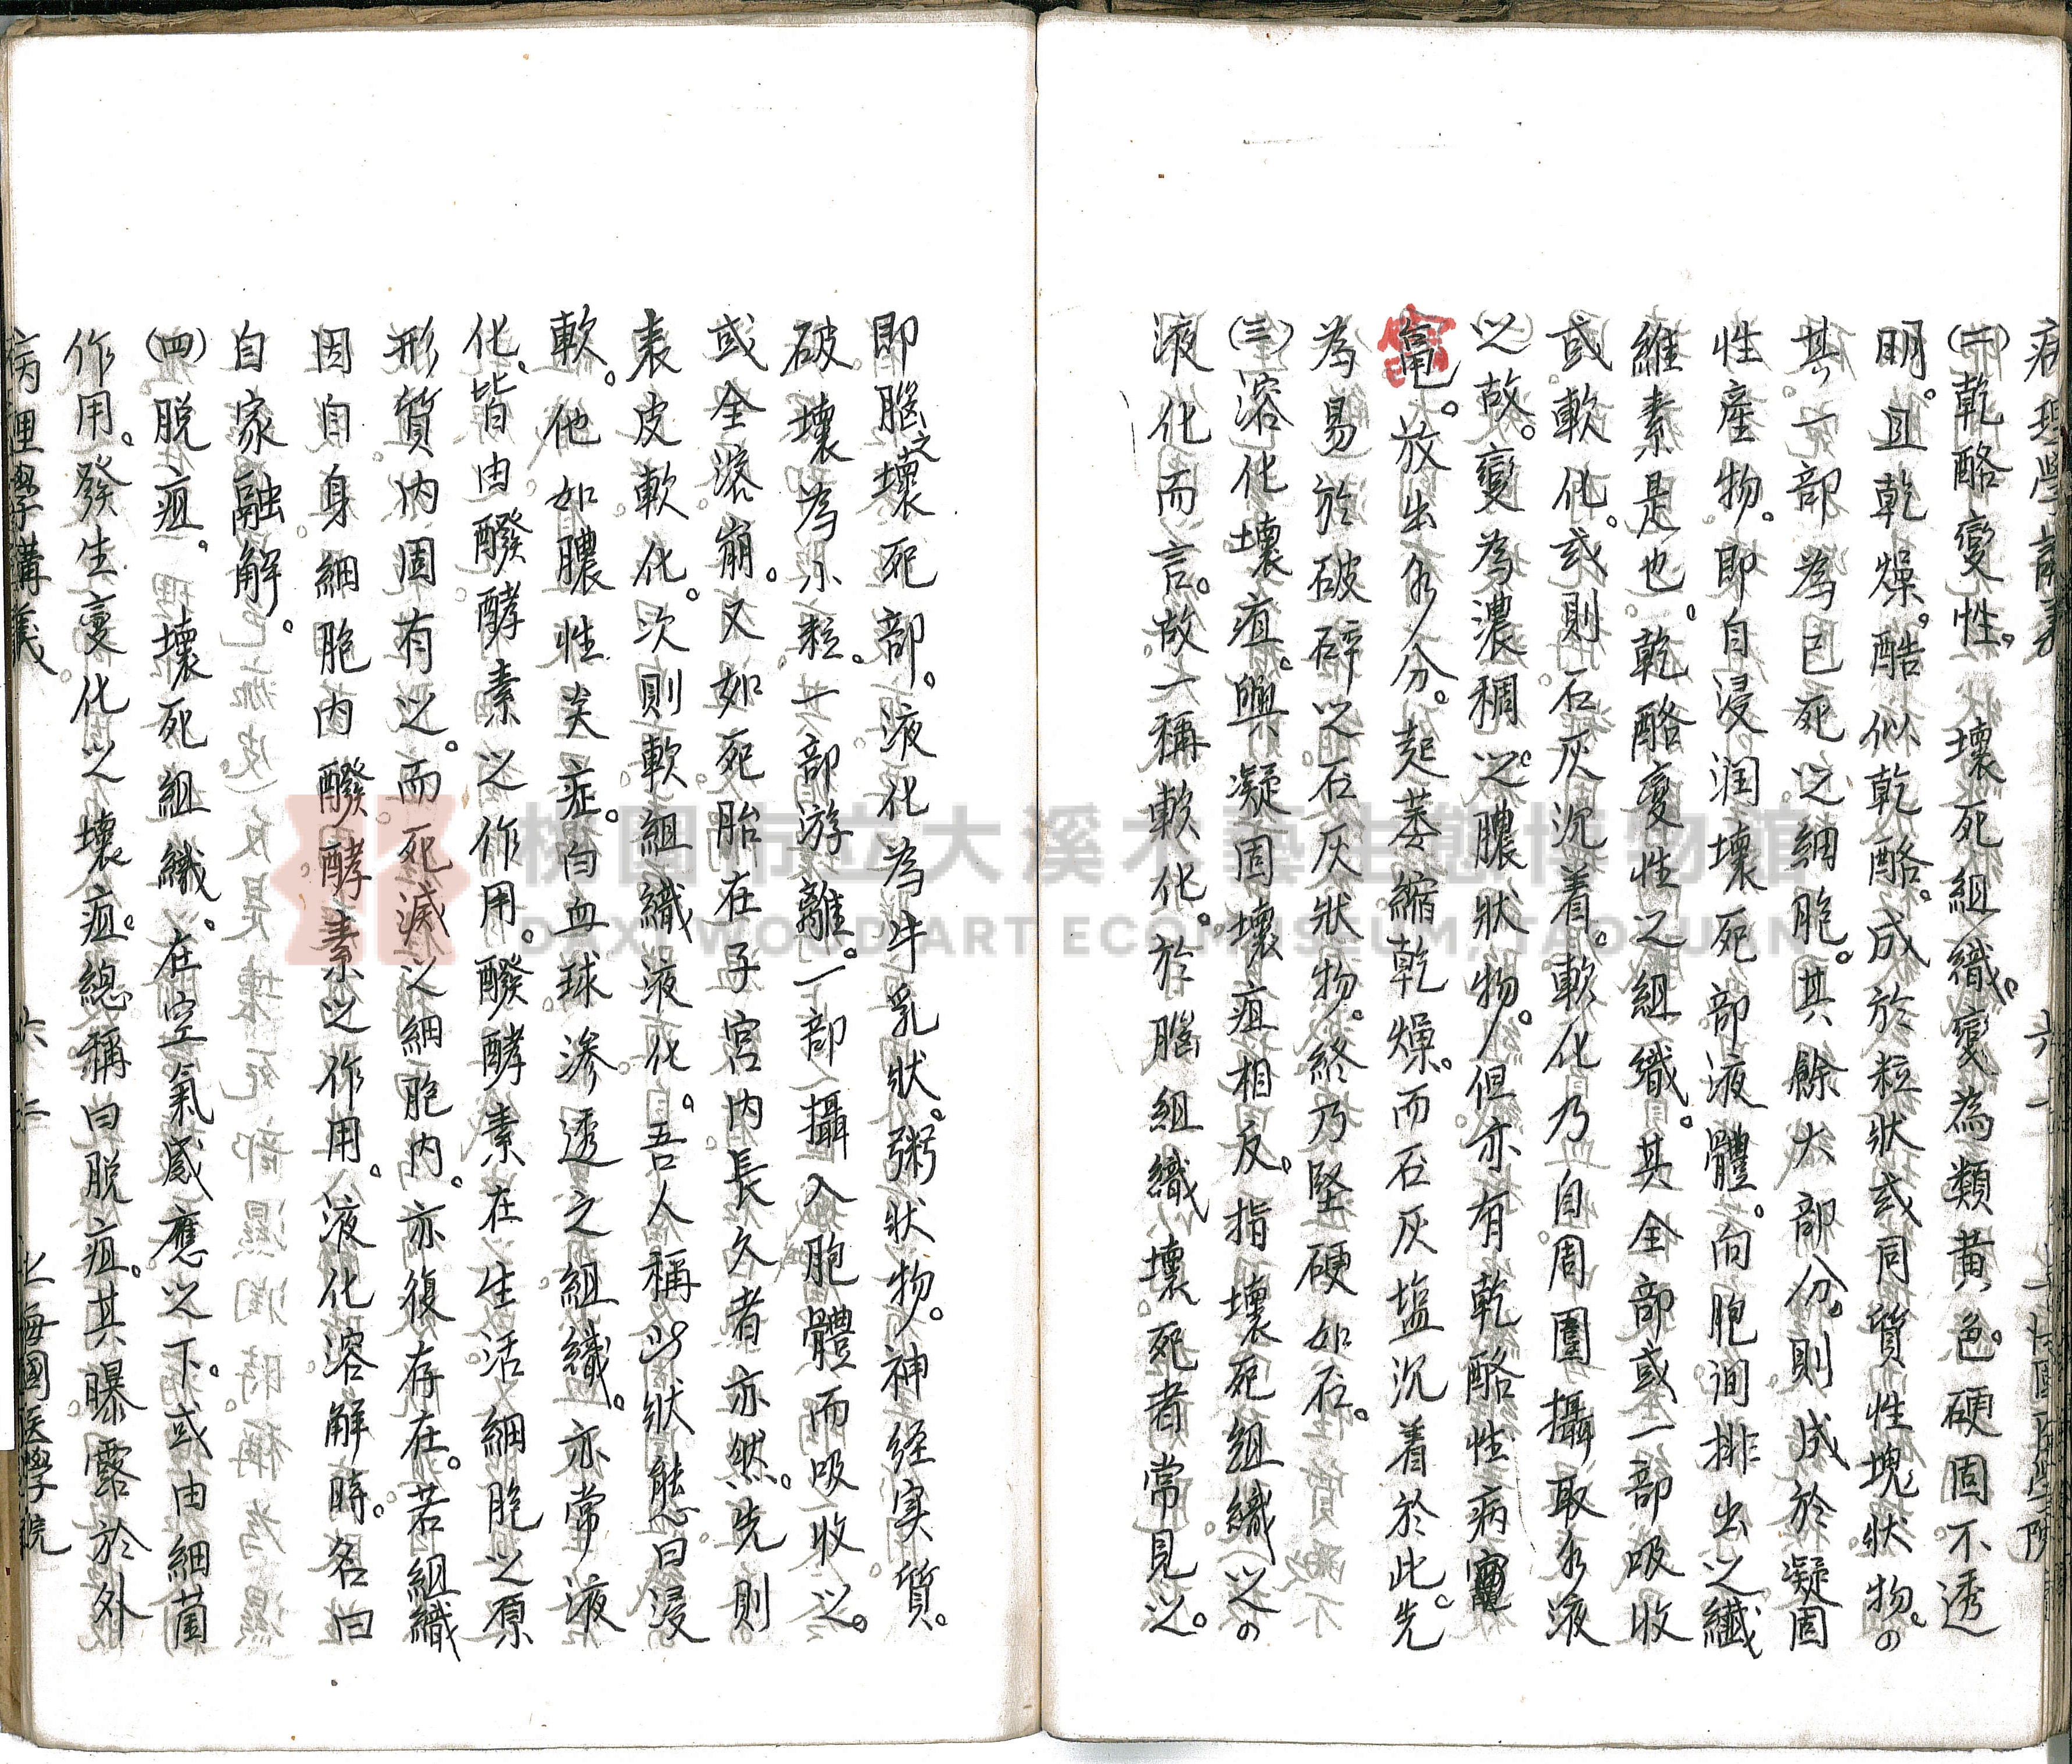 病理學講義　六一　上海國医學院
(二)乾酪變性。壞死組織。變為類黃色。硬固不透
明。且乾燥。酷似乾酪。成於粒狀或同質性塊狀物。の
其一部為已死之細胞。其餘大部分。則成於凝固
性產物。即自浸润壞死部液體。向胞间排出之纖
維素是也。乾酪變性之組織。其全部或一部吸收
或軟化。或則石灰沉着。軟化乃自周圍攝取水液
之故。變為濃稠之膿狀物。但亦有乾酪性病竈
竈。放出水分。起萎縮乾燥。而石灰塩沉着於此。先
為易於破碎之石灰狀物。終乃堅硬如石。
(三)溶化壞疽。與凝固壞疽相反。指壞死組織之の
液化而言。故一稱軟化。於腦組織壞死者常見之。
即腦之壞死部。液化為牛乳狀。粥狀物。神経実質。
破壞為小粒。一部游離。一部攝入胞體而吸收之。
或全溶崩。又如死胎在子宮內長久者亦然。先則
表皮軟化。次則軟組織液化。吾人稱此狀態曰浸
軟。他如膿性炎症。白血球滲透之組織。亦常液
化。皆由醱酵素之作用。醱酵素在生活細胞之原
形質内固有之。而死滅之細胞内。亦復存在。若組織
因自身細胞内醱酵素之作用。液化溶解時。名曰
自家融解。
(四)脱疽。壞死組織。在空氣感應之下。或由細菌
作用。發生變化之壞疽。總稱曰脱疽。其曝露於外
病理學講義　六二　上海國医學院
桃園市立大溪木藝生態博物館
DAXI WOOD ART ECOMUSEUM, TAOYUAN